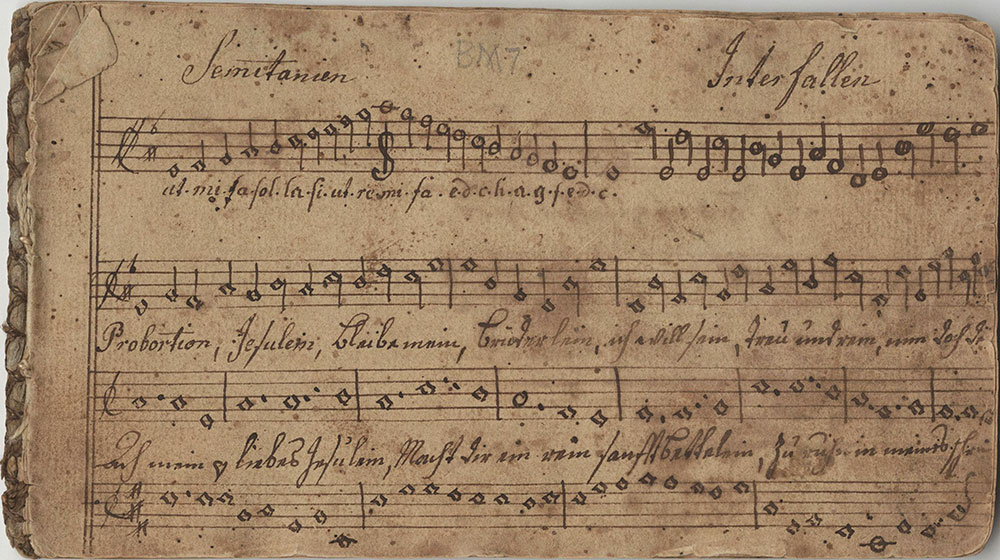 Semitanien BM7 Interfallen
ut. mi. fa. sol. la. si. ut. re. mi. fa. e. d. c. h. a. g. f. e. d. c.
Probortion, Jesulein, bleibe mein, brüderlein, ich will sein, treu und rein, nim doch di
Ach mein liebes Jesulein, Macht dir ein rein sanft bettelein, zu ruhn in meins